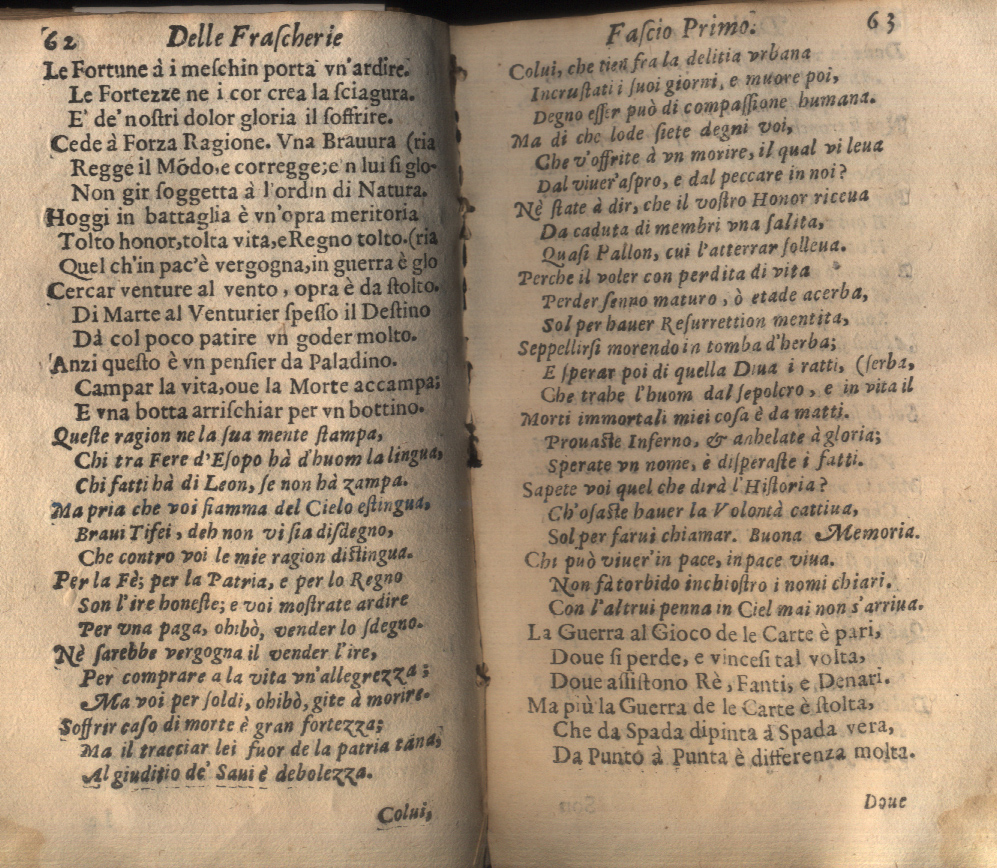 62 Delle Fraſcherie
Le Fortune à i meſchin porta vn'ardire.
Le Fortezze ne i cor crea la ſciagura.
E' de' noſtri dolor gloria il ſoffrire.
Cede à Forza Ragione. Vna Brauura (ria
Regge il Mōdo, e corregge; e'n lui ſi glo-
Non gir ſoggetta à l'ordin di Natura.
Hoggi in battaglia è vn'opra meritoria
Tolto honor, tolta vita, e Regno tolto. (ria
Quel ch'in pac'è vergogna, in guerra è glo
Cercar venture al vento, opra è da ſtolto.
Di Marte al Venturier ſpeſſo il Deſtino
Dà col poco patire vn goder molto.
Anzi queſto è vn penſier da Paladino.
Campar la vita, oue la Morte accampa;
E vna botta arriſchiar per vn bottino.
Queſte ragion ne la ſua mente ſtampa,
Chi tra Fere d'Eſopo hà d'huom la lingua,
Chi fatti hà di Leon, ſe non hà zampa.
Ma pria che voi fiamma del Cielo eſtingua,
Braui Tifei, deh non vi ſia diſdegno,
Che contro voi le mie ragion diſtingua.
Per la Fè; per la Patria, e per lo Regno
Son l'ire honeſte; e voi moſtrate ardire
Per vna paga, ohibò, vender lo ſdegno.
Nè ſarebbe vergogna il vender l'ire,
Per comprare a la vita vn'allegrezza;
Ma voi per ſoldi, ohibò, gite à morire.
Soffrir caſo di morte è gran fortezza;
Ma il tracciar lei fuor de la patria tana,
Al giuditio de' Saui è debolezza.
Colui,
Faſcio Primo. 63
Colui, che tien fra la delitia vrbana
Incruſtati i ſuoi giorni, e muore poi,
Degno eſſer può di compaſſione humana.
Ma di che lode ſiete degni voi,
Che v'offrite à vn morire, il qual vi leua
Dal viuer'aſpro, e dal peccare in noi?
Nè ſtate à dir, che il voſtro Honor riceua
Da caduta di membri vna ſalita,
Quaſi Pallon, cui l'atterrar ſolleua.
Perche il voler con perdita di vita
Perder ſenno maturo, ò etade acerba,
Sol per hauer Reſurrettion mentita,
Seppellirſi morendo in tomba d'herba;
E ſperar poi di quella Diua i ratti, (ſerba,
Che trahe l'huom dal ſepolcro, e in vita il
Morti immortali miei coſa è da matti.
Prouaſte Inferno, & anhelate à gloria;
Sperate vn nome, e diſperaſte i fatti.
Sapete voi quel che dirà l'Hiſtoria?
Ch'oſaſte hauer la Volontà cattiua,
Sol per farui chiamar. Buona Memoria.
Chi può viuer'in pace, in pace viua.
Non fà torbido inchioſtro i nomi chiari.
Con l'altrui penna in Ciel mai non s'arriua.
La Guerra al Gioco de le Carte è pari,
Doue ſi perde, e vinceſi tal volta,
Doue aſſiſtono Rè, Fanti, e Denari.
Ma più la Guerra de le Carte è ſtolta,
Che da Spada dipinta à Spada vera,
Da Punto à Punta è differenza molta.
Doue